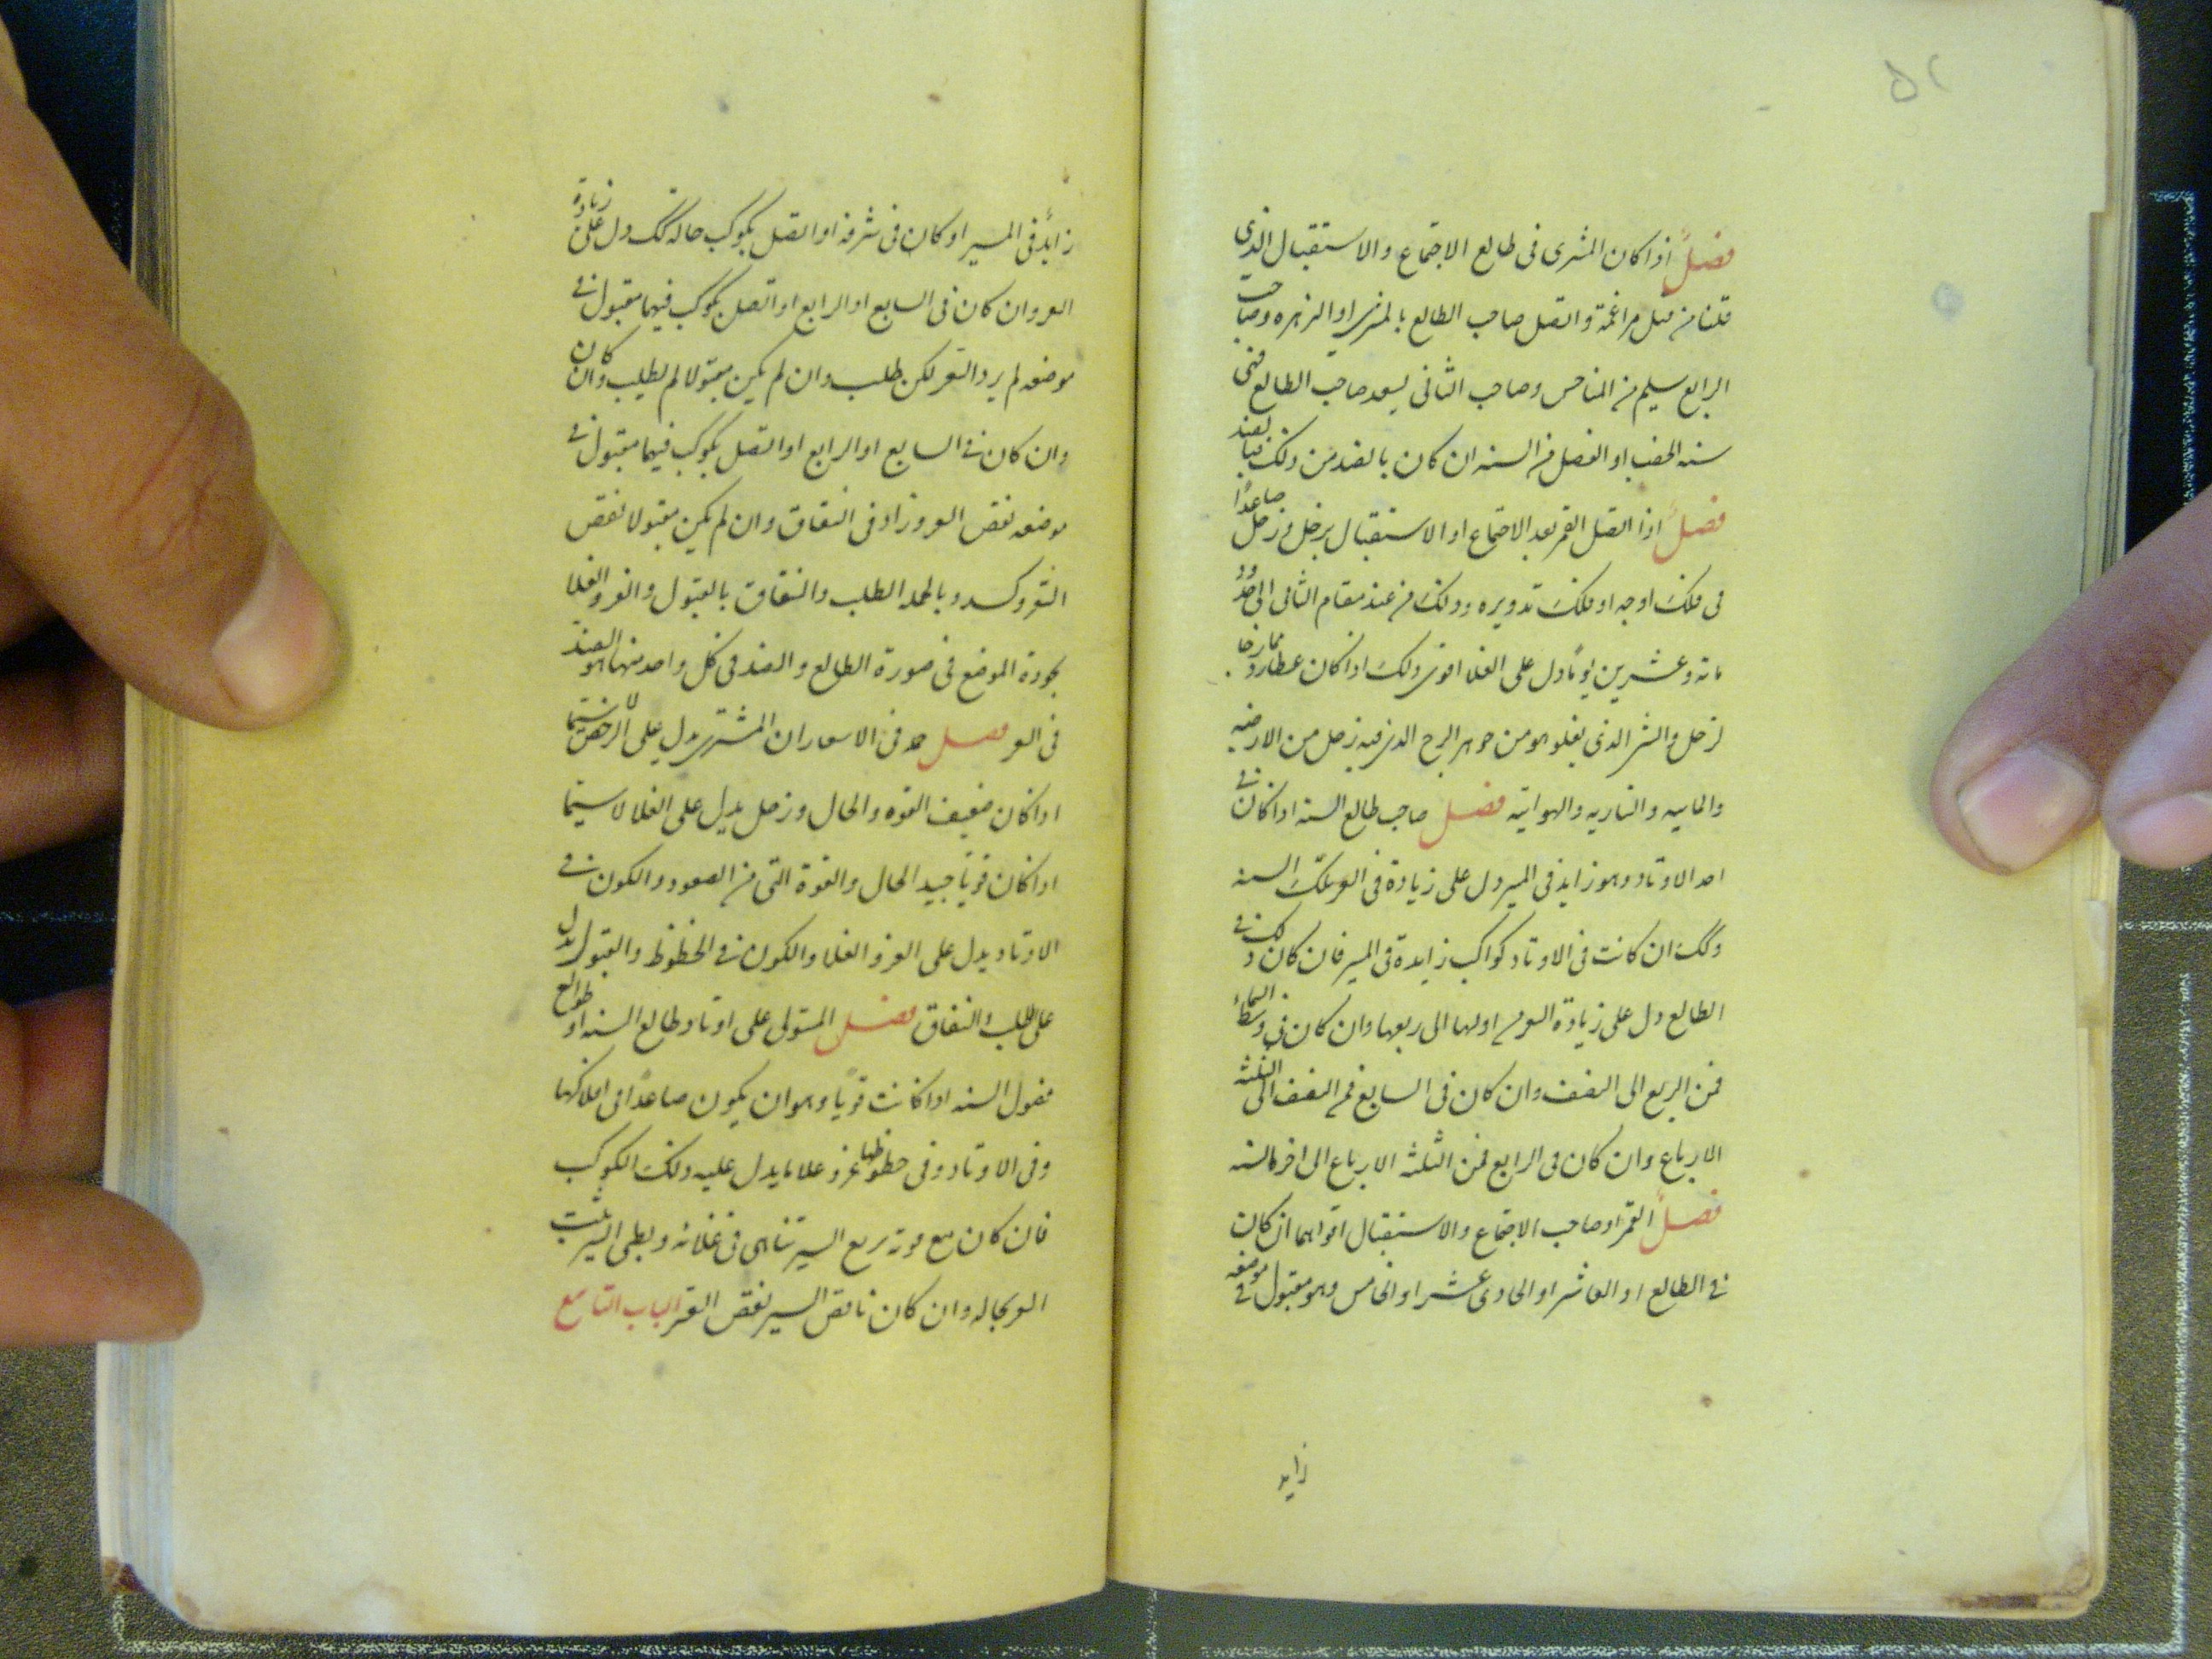 فصل اذا كان المشترى فى طالع الاجتماع والاستقبال الذى
قلنا من قبل مراغمة واتصل صاحب الطالع بالمشترى او الزهره وصاحب
الرابع سليم من المناحس وصاحب الثانى يسعد صاحب الطالع فهى
سنه الخصب او الفصل من السنه ان كان بالضد من ذلك فبالضد
فصل اذا اتصل القمر بعد الاجتماع او الاستقبال بزحل وزحل صاعدًا
فى فلك اوجه او فلك تدويره وذلك من عند مقام الثانى الى حدود
مائه وعشرين يومًا دل على الغلا اقوى ذلك اذا كان عطارد ممازجا
لزحل والشر الذى يغلو هو من جوهر البرج الذى فيه زحل من الارضيه
والماييه والناريه والهوائيه فصل صاحب طالع السنه اذا كان فى
احد الاوتاد وهو زايد فى المسير دل على زيادة فى السعر تلك السنه
وكك ان كانت فى الاوتاد كواكب زايدة فى المسير فان كان ذلك فى
الطالع دل على زيادة السعر من اولها الى ربعها وان كان فى وسط السماء
فمن الربع الى النصف وان كان فى السابع فمن النصف الى الثلثه
الارباع وان كان فى الرابع فمن الثلثه الارباع الى اخر السنه
فصل القمر او صاحب الاجتماع والاستقبال اقواهما ان كان
فى الطالع او العاشر او الحادى عشر او الخامس وهو مقبول فى موضعه
زايد
زائد فى المسير او كان فى شرفه او اتصل بكوكب حاله كك دل على زيادة
السعر وان كان فى السابع او الرابع او اتصل بكوكب فيهما مقبول فى
موضعه لم يرد السعر لكن طلب وان لم يكن مقبولا لم يطلب وان كان
وان كان فى السابع او الرابع او اتصل بكوكب فيهما مقبول فى
موضعه نقص السعر وزاد فى النفاق وان لم يكن مقبولا نقص
السعر وكسد وبالجمله الطلب والنفاق بالقبول والعز والغلا
بجودة الموضع فى صورة الطالع والضد فى كل واحد منهما هو الضد
فى السعر فصل فى الاسعار ان المشترى يدل على الرخص لا سيما
اذا كان ضعيف القوه والحال وزحل يدل على الغلا لا سيما
اذا كان قويا جيد الحال والقوة التى من الصعود والكون فى
الاوتاد يدل على العز والغلا والكون فى الحظوظ والقبول يدل
على الطلب والنفاق فصل المستولى على اوتاد طالع السنه او طوالع
فصول السنه اذا كانت قويا وهو ان يكون صاعدًا فى افلاكها
وفى الاوتاد وفى حظوظها عز وغلا ما يدل عليه ذلك الكوكب
فان كان مع قوته سريع السير تناهى فى غلائه وبطى السير ثبت
السعر بحاله وان كان ناقص السير نقص السعر الباب التاسع